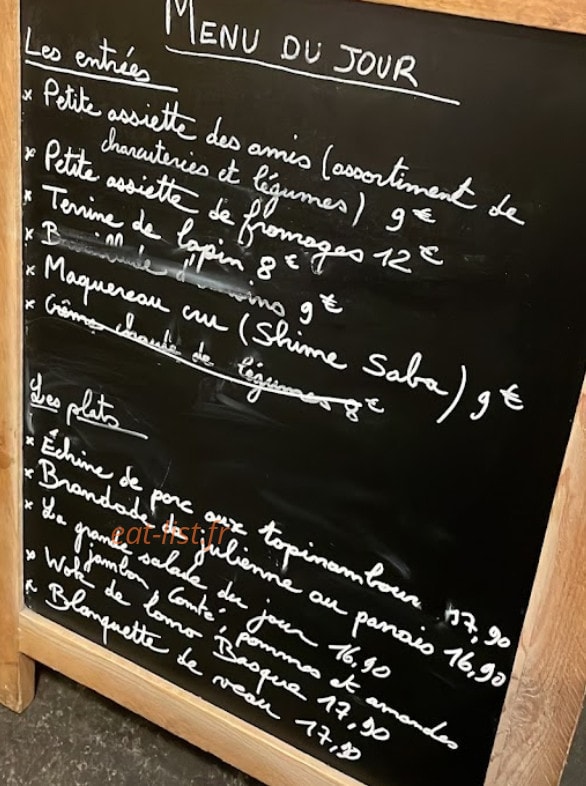 MENU DU JOUR
Les entrées
* Petite assiette des amis (assortiment de
charcuteries et légumes) 9€
* Petite assiette de fromages 12€
* Terrine de lapin 8€
* 9€
* Maquereau cru (Shime Saba) 9€
* Crème chaude de légumes 8€
Les plats
* Échine de porc aux topinambour 17,90
* Brandade de julienne au panais 16,90
* La grande salade du jour 16,90
jambon, Comté, pommes et amandes
* Wok de lomo Basque 17,90
* Blanquette de veau 17,90
eat-list.fr